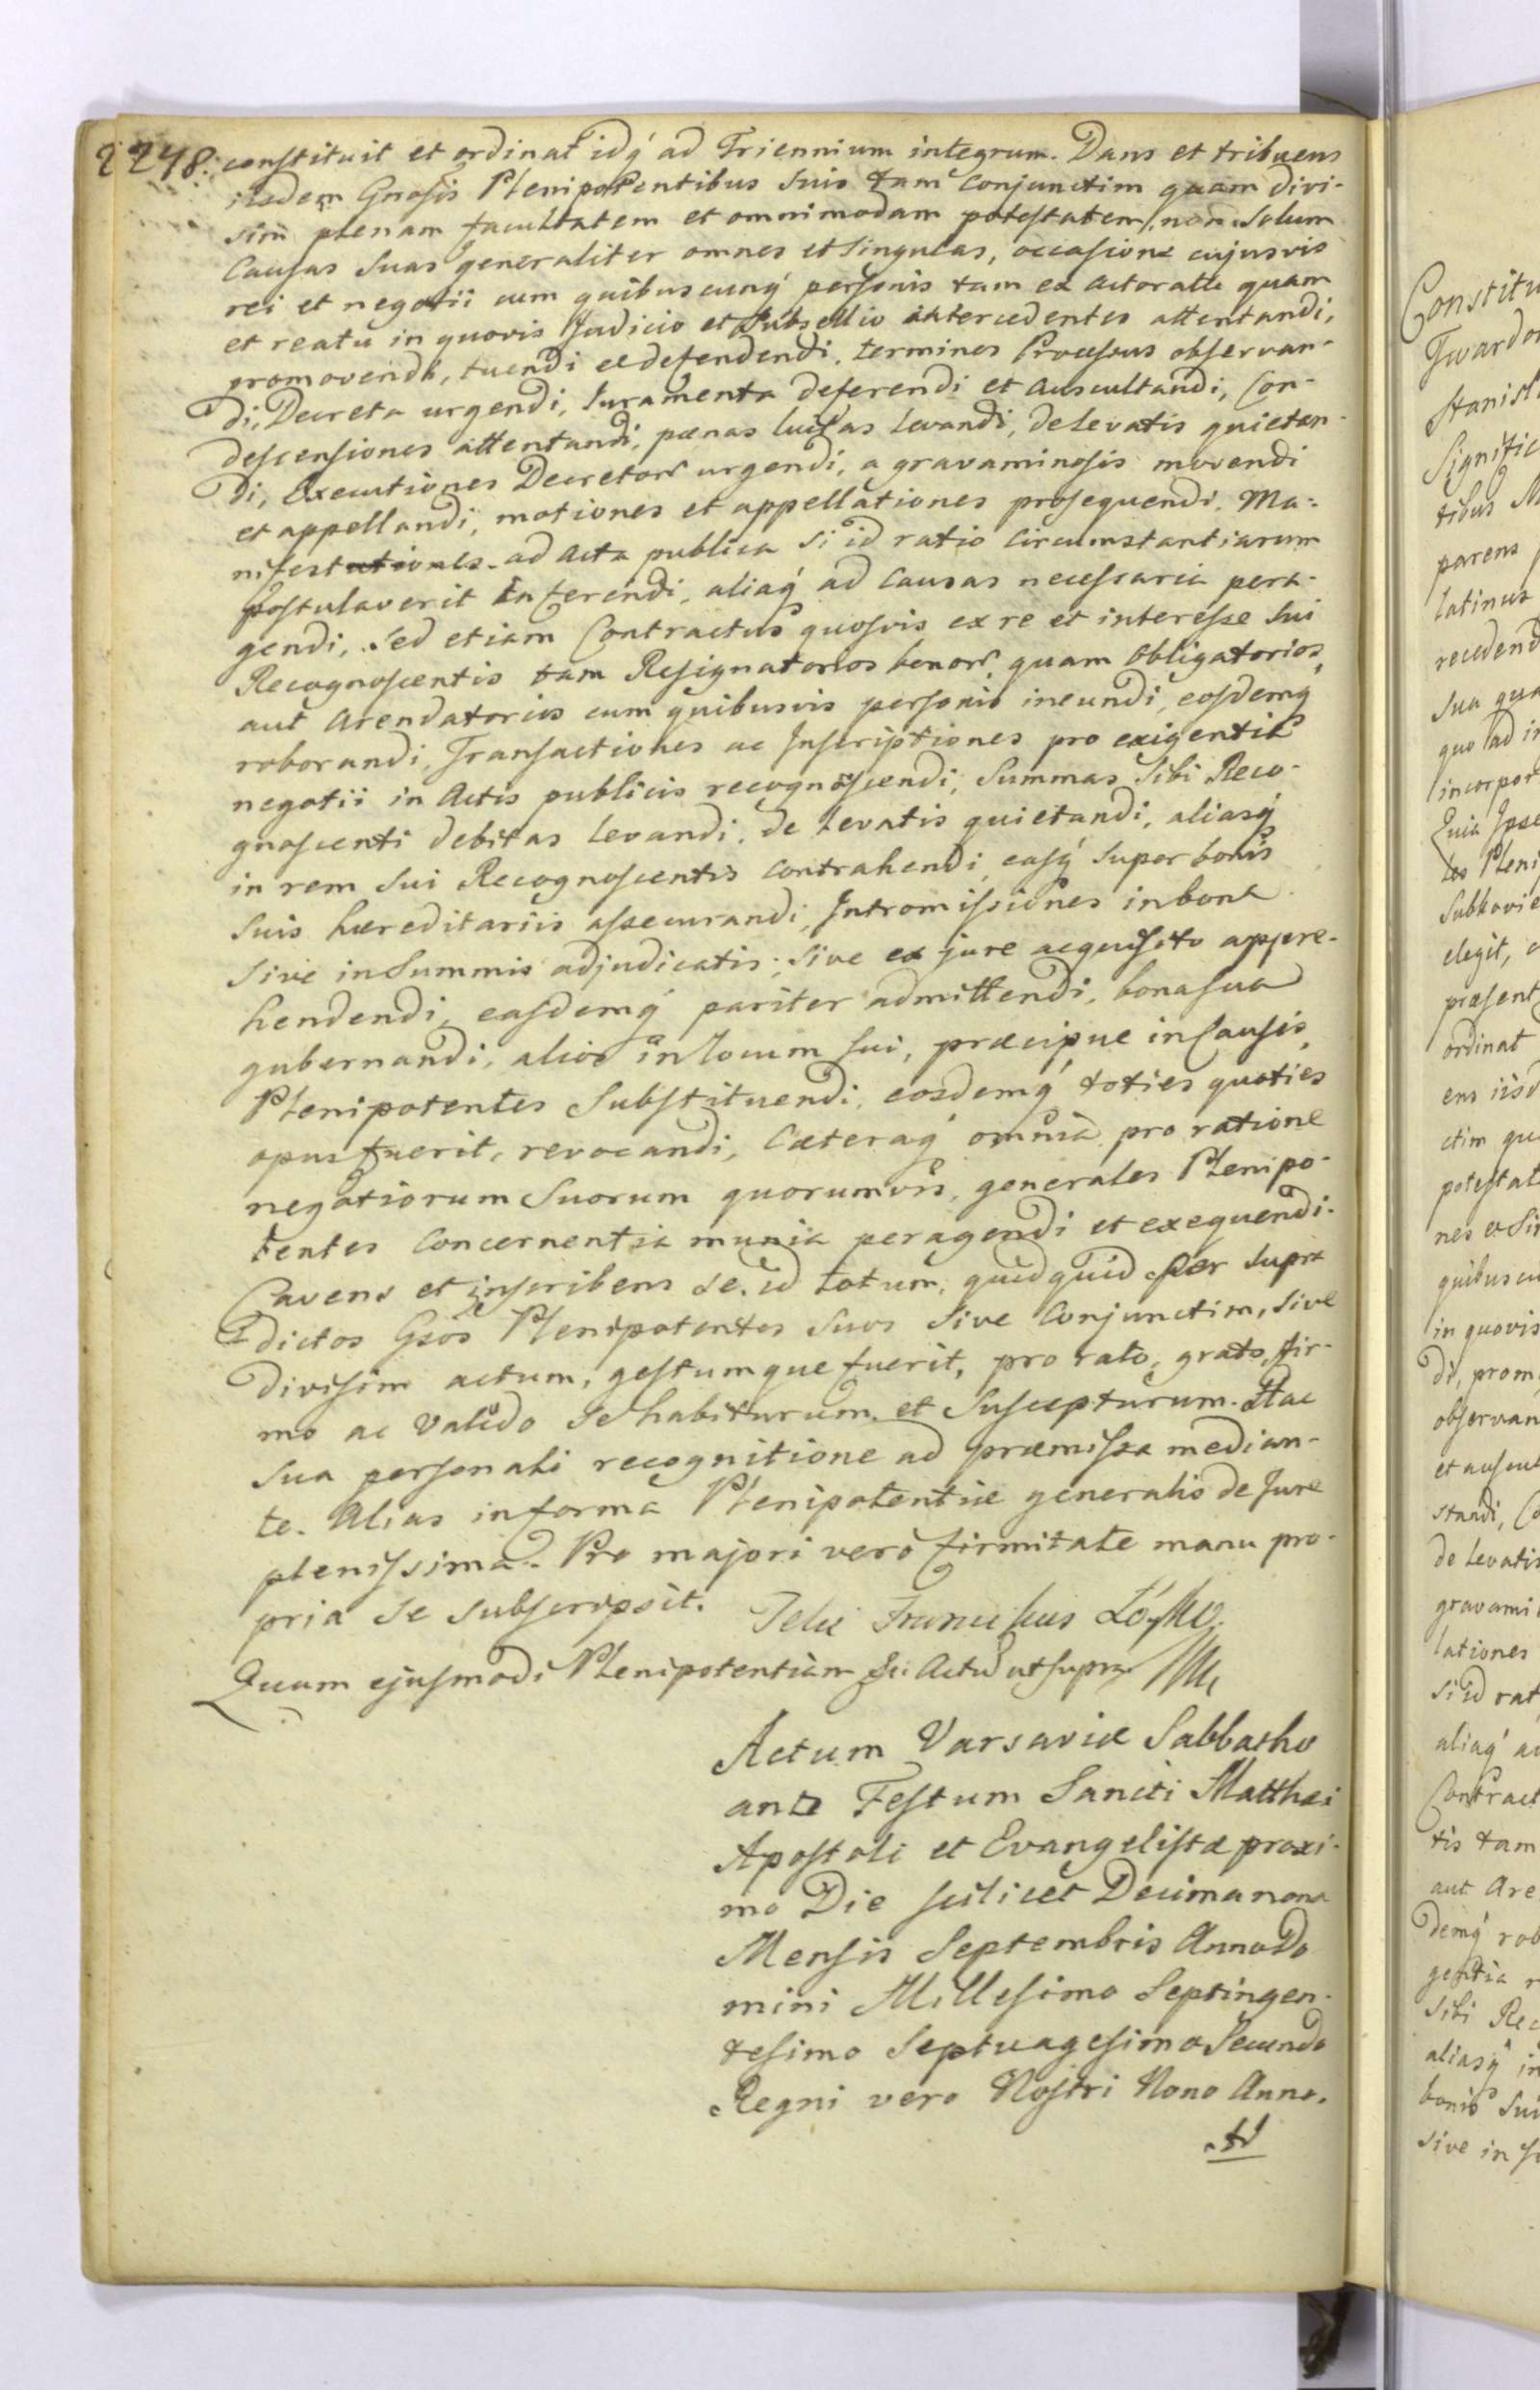 2248. constituit et ordinat idq́ ad Triennium integrum. Dans et tribuens
iisdem Gnosis Plenipotentibus suis tam conjunctim quam divi-
sim plenam facultatem et omnimodam potestatem, non solum
Causas suas generaliter omnes et singulas, occasione cujusvis
rei et negotii cum quibuscunq́ personis tam ex actoratu quam
et reatu in quovis Judicio et Subsellio intercedentes attentandi,
promovendi, tuendi et defendendi, terminos Processus observan-
di, Decreta urgendi, Iuramenta deferendi et auscultandi, Con-
descensiones attentandi, pænas luitas levandi, de levatis quietan-
di, Executiones Decretor urgendi, a gravaminosis movendi
et appellandi, motiones et appellationes prosequendi. Ma-
nifestationes ad acta publica si id ratio circumstantiarum
postulaverit inferendi, aliaq́ ad Causas necessaria pera-
gendi, sed etiam Contractus quosvis ex re et interesse sui
Recognoscentis tam Resignatorios bonor quam Obligatorios,
aut Arendatorios cum quibusvis personis ineundi, eosdemq́
roborandi, Transactiones ac Inscriptiones pro exigentia
negotii in Actis publicis recognoscendi, Summas sibi Reco-
gnoscenti debitas levandi, de levatis quietandi, aliasq́
in rem sui Recognoscentis contrahendi, easq́ super bonis
suis hæreditariis assecurandi, Intromissiones in bona
sive in Summis adjudicatis, sive ex jure acquisito appre-
hendendi, easdemq́ pariter admittendi, bona sua
gubernandi, alios in locum sui, præcipue in Causis,
Plenipotentes Substituendi, eosdemq́ toties quoties
opus fuerit, revocandi, Cæteraq́ omnia pro ratione
negotiorum Suorum quorumvis, generales Plenipo-
tentes Concernentia munia peragendi et exequendi.
Cavens et inscribens se, id totum, quidquid per supra
dictos Gsos Plenipotentes suos sive Conjunctim, sive
divisim actum, gestumque fuerit, pro rato, grato, fir-
mo ac valido se habiturum et Suscepturum. Hac
sua personali recognitione ad præmissa median-
te. Alias in forma Plenipotentiæ generalis de Jure
plenissima. Pro majori vero firmitate manu pro-
pria se subscripsit. Felix Franciskus Łoyko
Quam ejusmodi Plenipotentiam Actu ut supra
Actum Varsaviæ Sabbatho
ante Festum Sancti Matthæi
Apostoli et Evangelistæ proxi-
mo Die scilicet Decima nona
Mensis Septembris Anno Do
mini Millesimo Septingen-
tesimo Septuagesimo Secundo
Regni vero Nostri Nono Anno.
Constitu
Twardo
Stanisl
Signific
tibus M
parens
latinus
recedend
sua qua
quo ad in
incorpor
Quia Ipse
tes Pleni
Subkovie
elegit, c
præsent
ordinat
ens iisd
ctim qu
potestat
nes et Si
quibuscu
in quovis
di, prom
observan
et auscul
standi, Co
de levatis
gravami
lationes
si id rat
aliaq́ ad
Contract
tis tam
aut Are
demq́ rob
gentia n
sibi Rec
aliasq́ in
bonis sui
sive in S